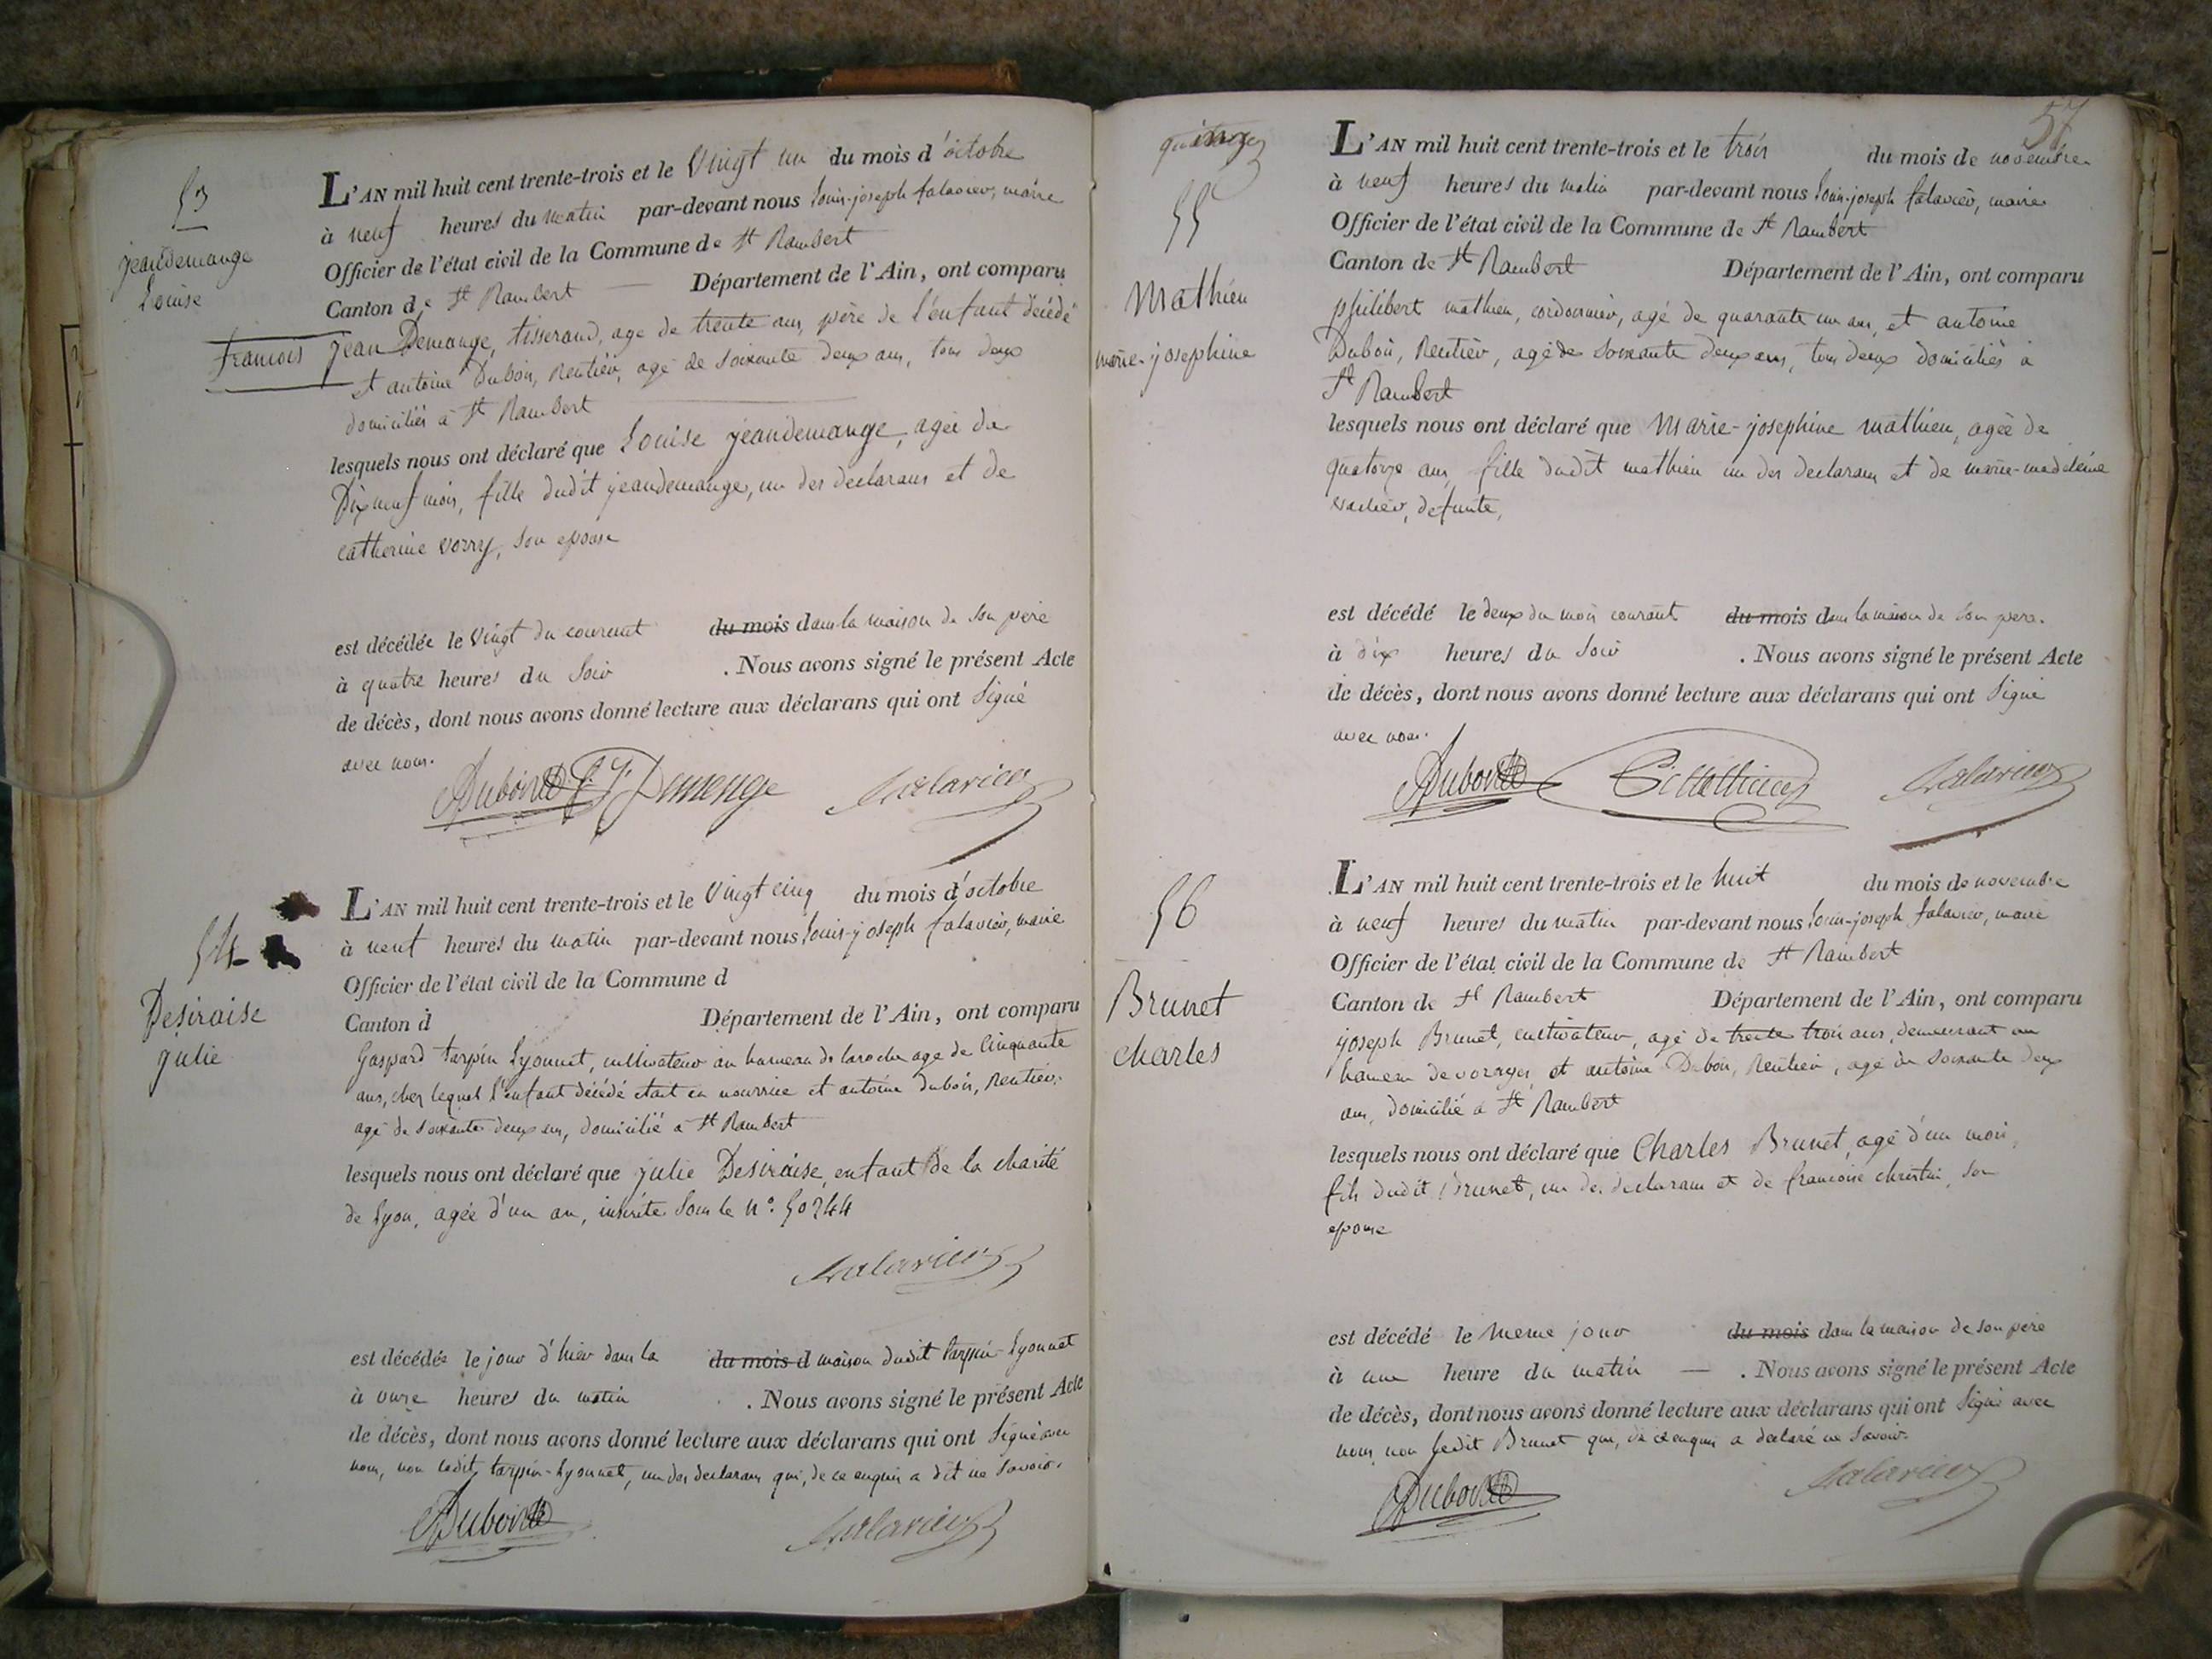 53
jeandemange
Louise
francois
L'AN mil huit cent trente-trois et le vingt un du mois d'octobre
à neuf heures du matin par-devant nous Louis-joseph falavier, maire
Officier de l'état civil de la Commune de St Rambert
Canton de St Rambert Département de l'Ain, ont comparu
jean Demange, tisserand, age de trente ans, père de l'enfant décédé
et antoine Dubois, Rentier, agé de soixante deux ans, tous deux
domiciliés à St Rambert
lesquels nous ont déclaré que Louise jeandemange, agée de
Dix neuf mois, fille dudit jeandemange, un des declarans et de
catherine vorry, son epouse
est décédée le vingt du courent du mois dans la maison de son père
à quatre heures du soir . Nous avons signé le présent Acte
de décès, dont nous avons donné lecture aux déclarans qui ont signé
avec nous.
Dubois Demenge falavier
54
Desiraise
julie
L'AN mil huit cent trente-trois et le vingt cinq du mois d'octobre
à neuf heures du matin par-devant nous Louis-joseph falavier, maire
Officier de l'état civil de la Commune d
Canton d Département de l'Ain, ont comparu
Gaspard tarpin Lyonnet, cultivateur au hameau de laroche age de cinquante
ans, chez lequel l'enfant décédé etait en nourrice et antoine dubois, Rentier,
agé de soixante deux ans, domicilié à St Rambert
lesquels nous ont déclaré que julie Desiraise, enfant de la charité
de Lyon, agée d'un an, inscrite sous le n° 50244
falavier
est décédée le jour d'hier dans la du mois d maison dudit tarpin-Lyonnet
à onze heures du matin . Nous avons signé le présent Acte
de décès, dont nous avons donné lecture aux déclarans qui ont signé avec
nous, non ledit tarpin-Lyonnet, un des declarans qui, de ce enquis a dit ne savoir.
Dubois falavier
57
quinze
55
Mathieu
marie-josephine
L'AN mil huit cent trente-trois et le trois du mois de novembre
à neuf heures du matin par-devant nous Louis-joseph falavier, maire
Officier de l'état civil de la Commune de St Rambert
Canton de St Rambert Département de l'Ain, ont comparu
philibert mathieu, cordonnier, agé de quarante un ans, et antoine
Dubois, Rentier, agé de soixante deux ans, tous deux domiciliés à
St Rambert
lesquels nous ont déclaré que Marie-josephine mathieu, agée de
quatorze ans, fille dudit mathieu un des declarans et de marie-madeleine
defunte,
est décédé le deux du mois courant du mois dans la maison de son pere.
à dix heures du soir . Nous avons signé le présent Acte
de décès, dont nous avons donné lecture aux déclarans qui ont signé
avec nous.
Dubois falavier
56
Brunet
charles
L'AN mil huit cent trente-trois et le huit du mois de novembre
à neuf heures du matin par-devant nous Louis-joseph falavier, maire
Officier de l'état civil de la Commune de St Rambert
Canton de St Rambert Département de l'Ain, ont comparu
joseph Brunet, cultivateur, agé de trente trois ans, demeurant au
hameau de vorages, et antoine Dubois, Rentier, agé de soixante deux
ans, domicilié à St Rambert
lesquels nous ont déclaré que Charles Brunet, agé d'un mois,
fils dudit Brunet, un des declarans et de francoise christin, son
epouse
est décédé le meme jour du mois dans la maison de son père
à une heure du matin . Nous avons signé le présent Acte
de décès, dont nous avons donné lecture aux déclarans qui ont signé avec
nous non ledit Brunet qui, de ce enquis a declaré ne savoir.
Dubois falavier